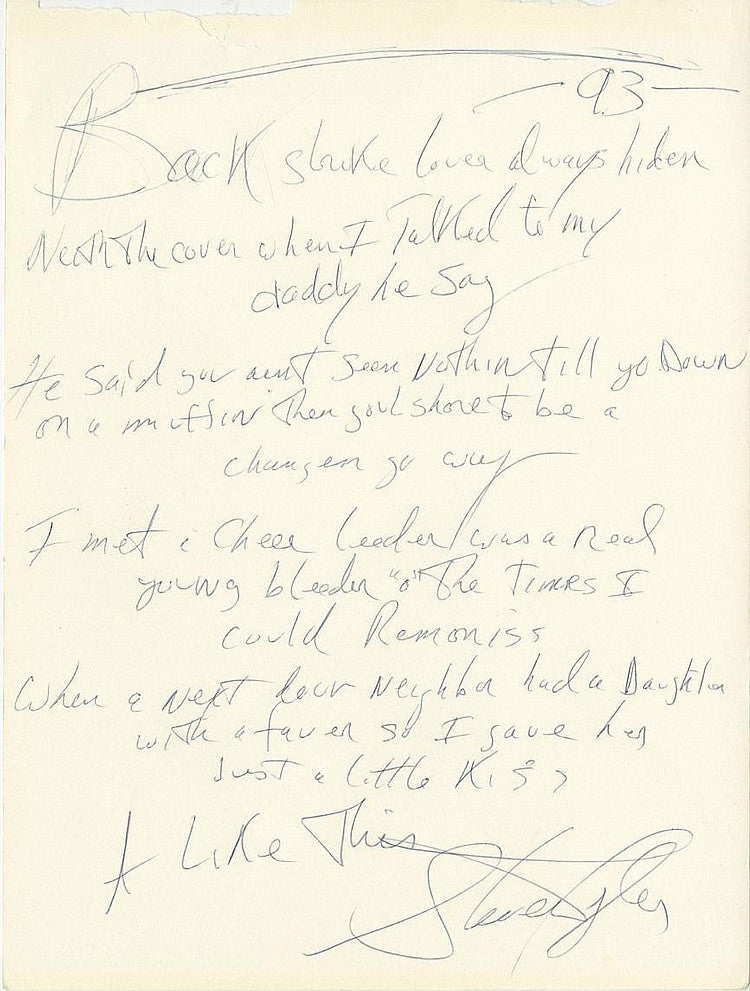 —93—
Back stroke lover always hiden
Neath the cover when I Talked to my
daddy he say
He said you aint seen Nothin till yo Down
on a muffin Then youl shore to be a
changen yo way
I met a Cheer leeder was a real
young bleeder "o" The Times I
could Remoniss
When a next door Neighbor had a Daughter
with a faver so I gave her
Just a little Kiss
A Like This
Steven Tyler